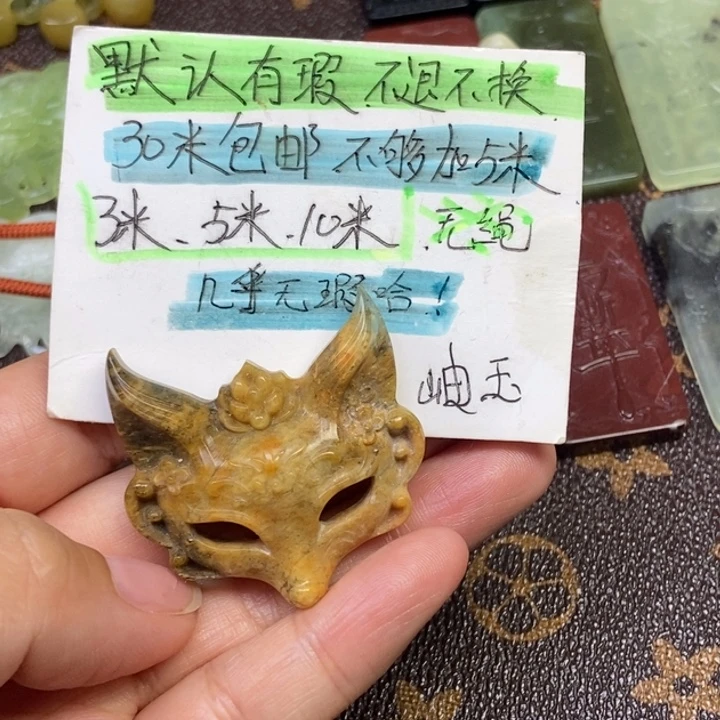 默认有瑕 不退不换
30米包邮 不够加5米
3米、5米、10米 无绳
几乎无瑕哈！
岫玉